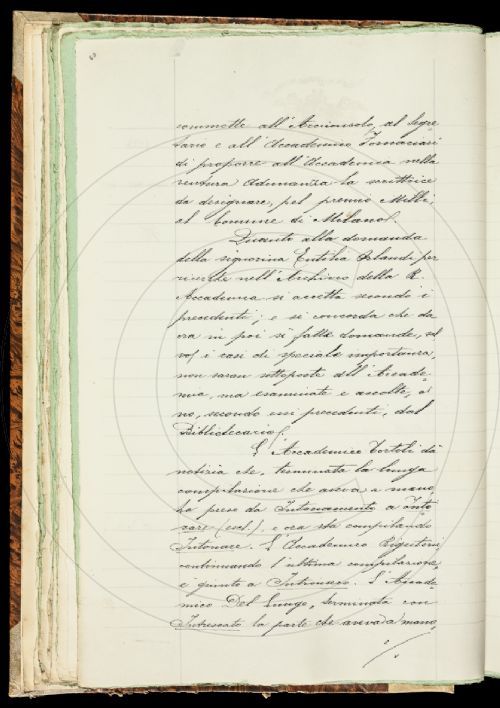 commette all'Arciconsolo, al Segre-
tario e all'Accademico Fornaciari
di proporre all'Accademica nella
ventura Adunanza la scrittrice
da designare, pel premio Milli,
al Comune di Milano.
Quanto alla domanda
della signorina Orlandi per
ricerche nell'Archivio della R.
Accademia si accetta secondo i
precedenti; e si concorda che da
ora in poi sì fatte domande, sal
vo i casi di speciale importanza,
non saran sottoposte all'Accade-
mia, ma esaminate e accolte, o
no, secondo essi precedenti, dal
Bibliotecario.
L'Accademico Tortoli dà
notizia che, terminata la lunga
compilazione che aveva a mano,
ha preso da Intonamento a Into
nare (escl.), e ora sta compilando
Intonare. L'Accademico Rigutini,
continuando l'ultima compilazione,
è giunto a L'Accade-
mico Del Lungo, terminata con
Intrescato la parte che aveva a mano,